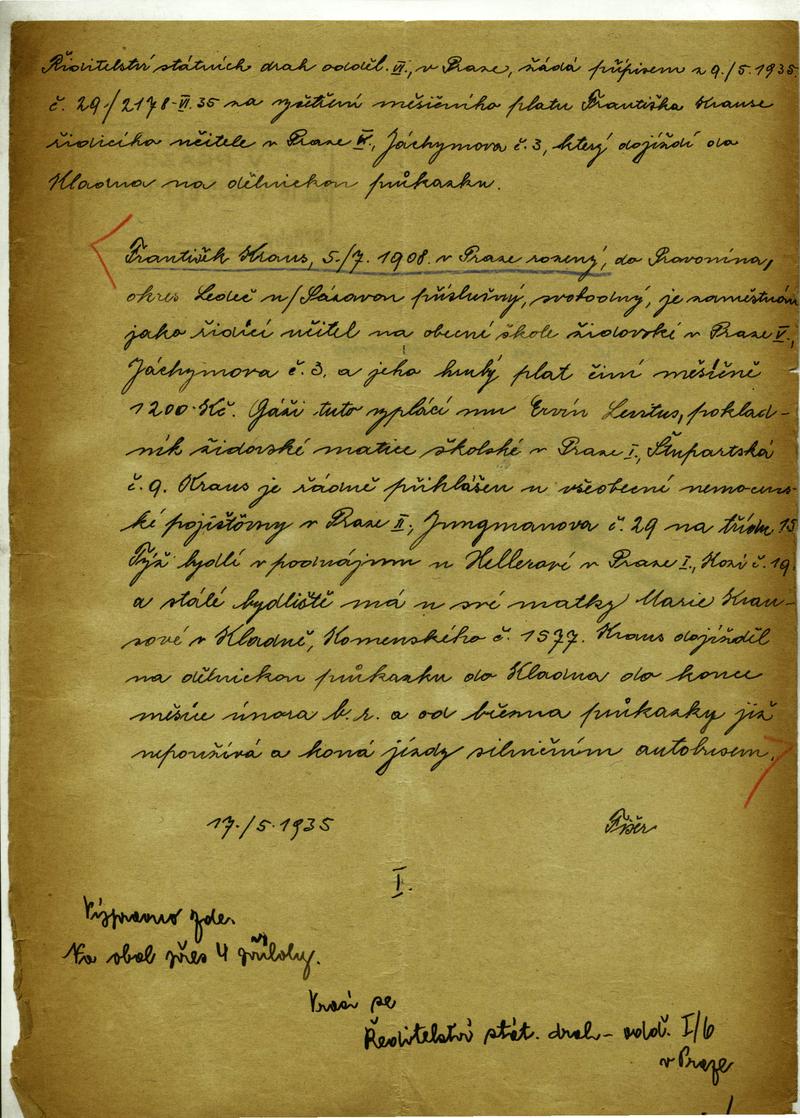 Ředitelství státních drah odděl. VI., v Praze, žádá přípisem z 9./5.1935
č. 29/2178-VI.35 za vyšetření měsíčního platu Františka Krause
řídícího učitele v Praze V., Jáchymova č.3, který dojíždí do
Kladna na dělnickou průkazku.
František Kraus, 5./7. 1908. v Praze rozený, do Pravonína,
okres Ledeč n/Sázavou příslušný, svobodný, je zaměstnán
jako řídící učitel na obecní škole židovské v Praze V.,
Jáchymova č.3. a jeho hrubý plat činí měsíčně
1200.Kč. Gáži tuto vyplácí mu Ervín Lentus, poklad-
ník židovské matice školské v Praze I., Štupartská
č.9. Kraus je řádně přihlášen u všeobecné nemocens-
ké pojišťovny v Praze II., Jungmanova č.29 na třídu 15
Týž bydlí v podnájmu u Hellerové v Praze I., Kozí č.19
a stálé bydliště má u své matky Marie Krau-
sové v Kladně, Komenského č. 1577. Kraus dojížděl
na dělnickou průkazku do Kladna do konce
měsíce února b.r. a od března průkazky již
nepoužívá a koná jízdy silničním autobusem.
17./5.1935
Fišer
I.
Výpraveno zde.
Na obal přes 4 přílohy.
Vrací se
Ředitelství stát. drah – odd. I/6
v Praze